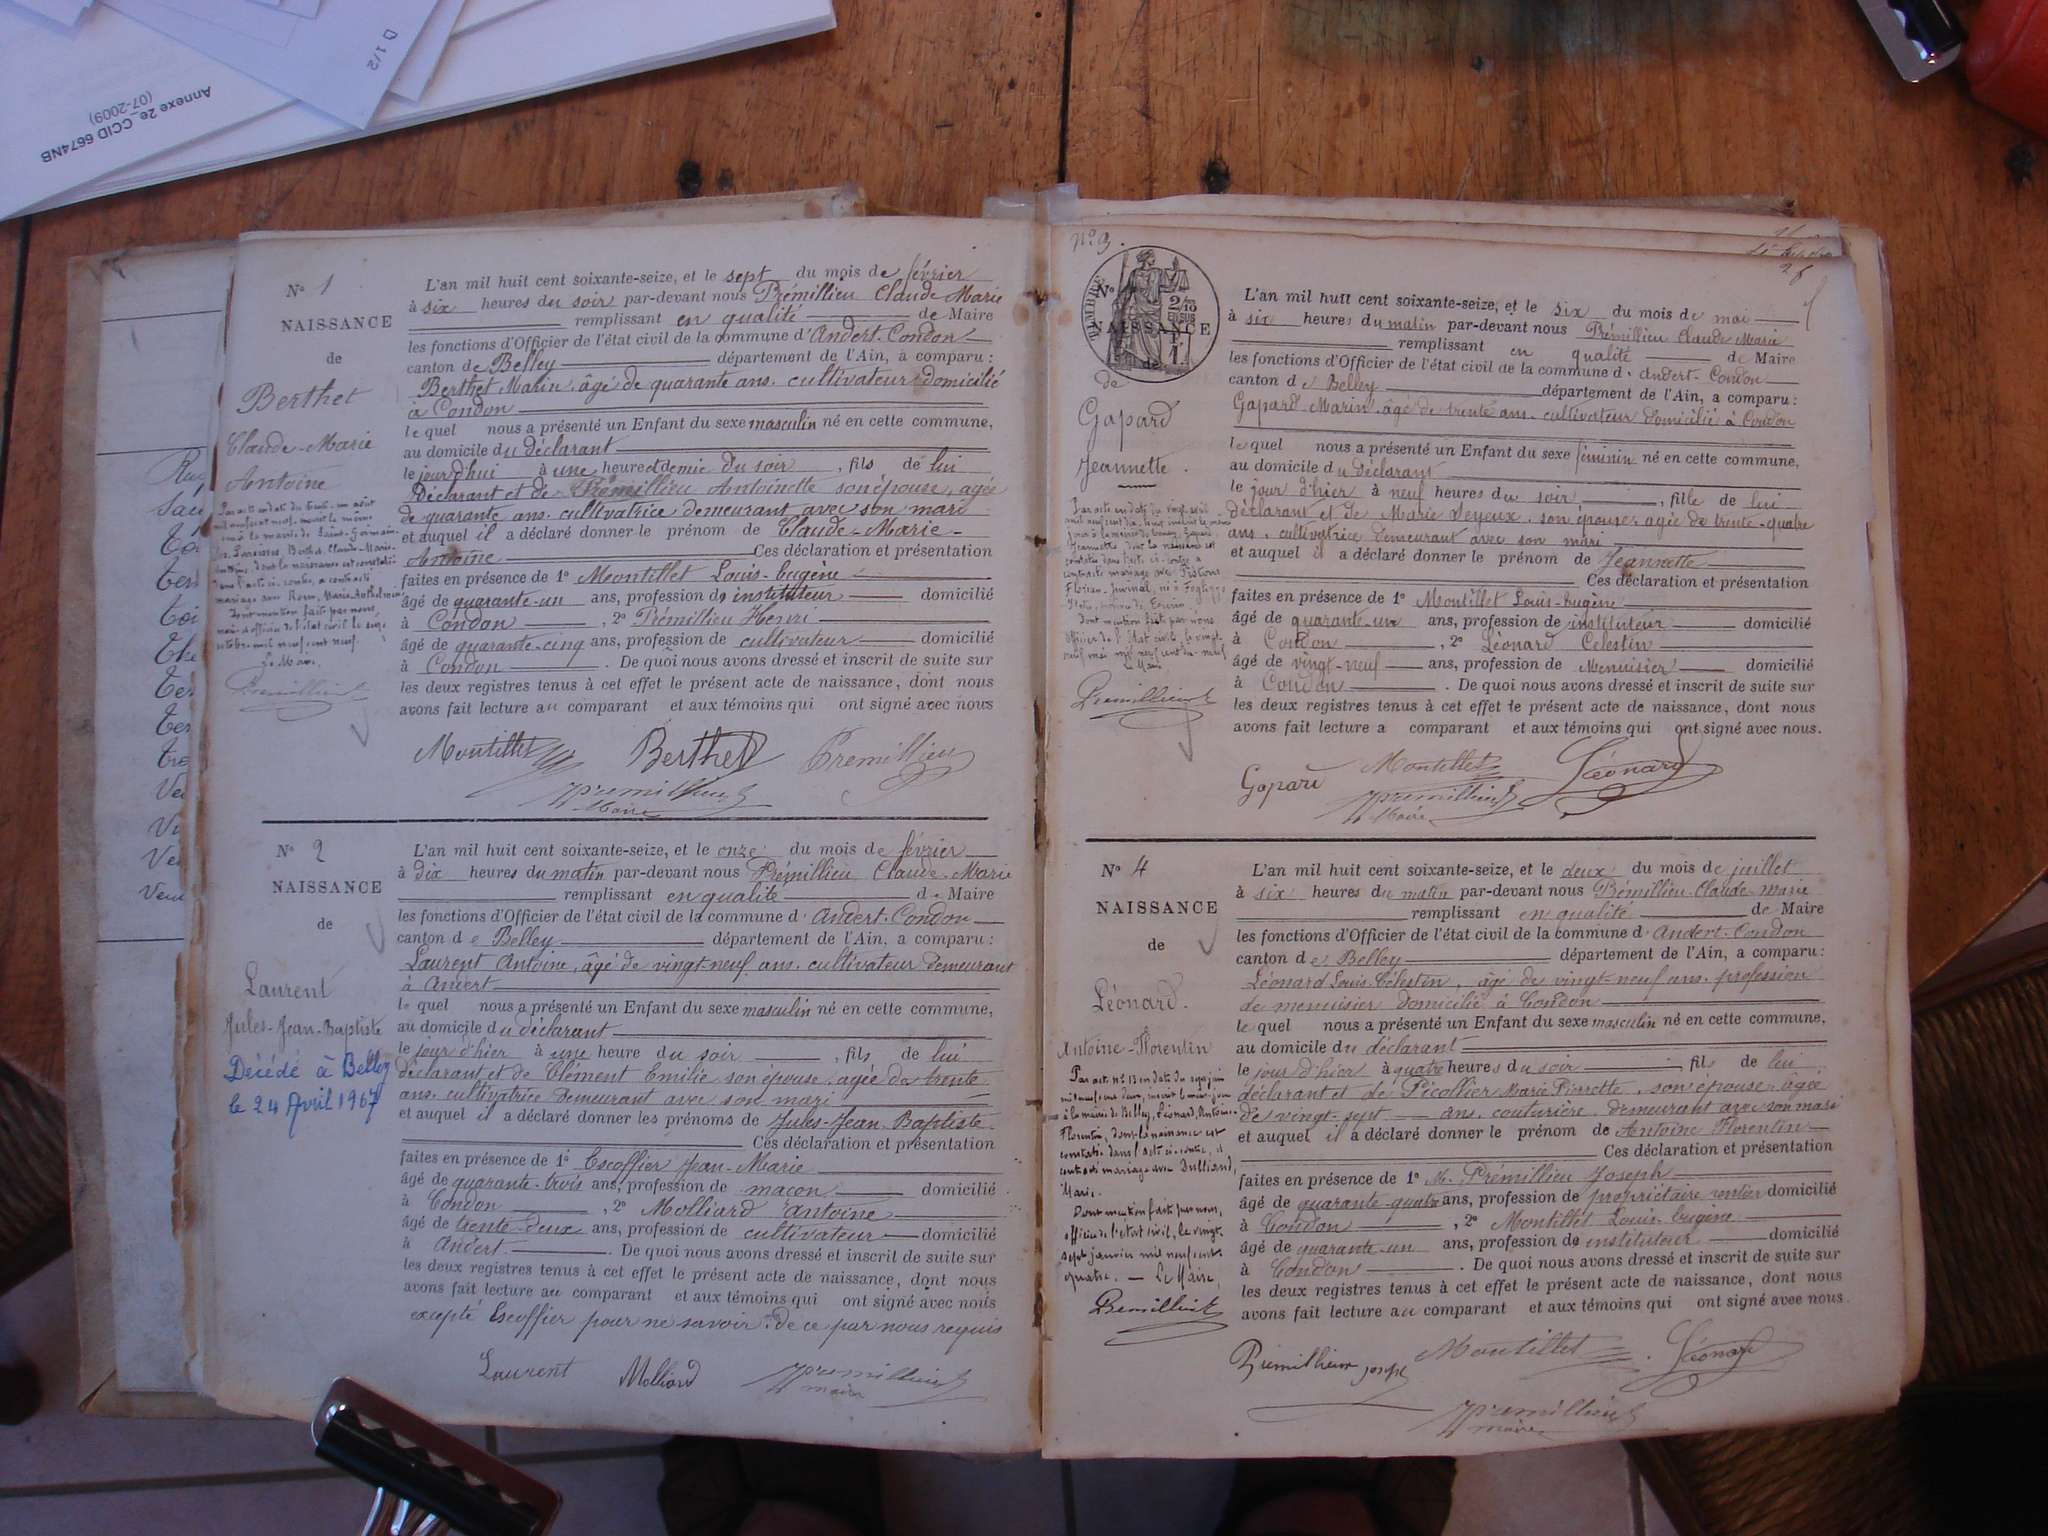 D 1/2
Annexe 2e_CCID 6674NB
(07-2009)
N° 1
NAISSANCE
de
Berthet
Claude-Marie
Antoine
Par acte en date du trente-un août
mil neuf cent neuf, inscrit le même
jour à la mairie de Saint-Germain-
les-Paroisses, Berthet, Claude-Marie-
Antoine, dont la naissance est constatée
dans l'acte ci-contre, a contracté
mariage avec
Dont mention faite par nous,
maire et officier de l'état civil le
octobre mil neuf cent neuf.
Le Maire,
Prémillieu
L'an mil huit cent soixante-seize, et le sept du mois de février
à six heures du soir par-devant nous Prémillieu Claude Marie
remplissant en qualité de Maire
les fonctions d'Officier de l'état civil de la commune d'Andert-Condon
canton de Belley département de l'Ain, a comparu :
Berthet Marin, âgé de quarante ans, cultivateur domicilié
à Condon
lequel nous a présenté un Enfant du sexe masculin né en cette commune,
au domicile du Déclarant
le jourd'hui à une heure et demie du soir, fils de lui
Déclarant et de Prémillieu Antoinette son épouse, agée
de quarante ans, cultivatrice demeurant avec son mari
et auquel il a déclaré donner le prénom de Claude-Marie-
Antoine Ces déclaration et présentation
faites en présence de 1° Montillet Louis-Eugène
âgé de quarante-un ans, profession de instituteur domicilié
à Condon, 2° Prémillieu Henri
âgé de quarante-cinq ans, profession de cultivateur domicilié
à Condon. De quoi nous avons dressé et inscrit de suite sur
les deux registres tenus à cet effet le présent acte de naissance, dont nous
avons fait lecture au comparant et aux témoins qui ont signé avec nous
Montillet Berthet Premillieu
Premillieu
Maire
N° 2
NAISSANCE
de
Laurent
Jules-Jean-Baptiste
Décédé à Belley
le 24 Avril 1967
L'an mil huit cent soixante-seize, et le onze du mois de février
à dix heures du matin par-devant nous Prémillieu Claude-Marie
remplissant en qualité de Maire
les fonctions d'Officier de l'état civil de la commune d'Andert-Condon
canton de Belley département de l'Ain, a comparu :
Laurent Antoine, âgé de vingt-neuf ans, cultivateur demeurant
à Andert
lequel nous a présenté un Enfant du sexe masculin né en cette commune,
au domicile du déclarant
le jour d'hier à une heure du soir, fils de lui
déclarant et de Clément Emilie son épouse, agée de trente
ans, cultivatrice demeurant avec son mari
et auquel il a déclaré donner les prénoms de Jules-Jean-Baptiste
Ces déclaration et présentation
faites en présence de 1° Escoffier Jean-Marie
âgé de quarante-trois ans, profession de maçon domicilié
à Condon, 2° Molliard Antoine
âgé de trente-deux ans, profession de cultivateur domicilié
à Andert. De quoi nous avons dressé et inscrit de suite sur
les deux registres tenus à cet effet le présent acte de naissance, dont nous
avons fait lecture au comparant et aux témoins qui ont signé avec nous
excepté Escoffier pour ne savoir. De ce par nous requis
Laurent Molliard Premillieu
maire
N° 3.
26
TIMBRE
2/10 EN SUS
N°
NAISSANCE
de
de
Gapard
Jeannette.
Par acte en date du vingt avril
Jeannette, dont la naissance est
constatée dans l'acte ci-contre a
contracté mariage avec
Dont mention faite par nous
officier de l'état civil, le vingt-
neuf mai mil neuf cent dix-neuf
Le Maire
Premillieu
L'an mil huit cent soixante-seize, et le six du mois de mai
à six heures du matin par-devant nous Prémillieu Claude Marie
remplissant en qualité de Maire
les fonctions d'Officier de l'état civil de la commune d'Andert-Condon
canton de Belley département de l'Ain, a comparu :
Gapard Marin, âgé de trente ans, cultivateur domicilié à Condon
lequel nous a présenté un Enfant du sexe féminin né en cette commune,
au domicile du Déclarant
le jour d'hier à neuf heures du soir, fille de lui
déclarant et de Marie Deyeux, son épouse, agée de trente-quatre
ans, cultivatrice demeurant avec son mari
et auquel il a déclaré donner le prénom de Jeannette
Ces déclaration et présentation
faites en présence de 1° Montillet Louis-Eugène
âgé de quarante-un ans, profession de instituteur domicilié
à Condon, 2° Léonard Celestin
âgé de vingt-neuf ans, profession de Menuisier domicilié
à Condon. De quoi nous avons dressé et inscrit de suite sur
les deux registres tenus à cet effet le présent acte de naissance, dont nous
avons fait lecture a comparant et aux témoins qui ont signé avec nous.
Gapard Montillet Léonard
Premillieu
Maire
N° 4
NAISSANCE
de
Léonard.
Antoine-Florentin
Par acte n° 13 en date du sept juin
mil neuf cent deux, inscrit le même jour
à la mairie de Belley, Léonard, Antoine-
Florentin, dont la naissance est
constatée dans l'acte ci-contre, a
contracté mariage avec Dulliand,
Marie.
Dont mention faite par nous,
officier de l'état civil, le vingt-
sept janvier mil neuf cent
quatre. — Le Maire,
Premillieu
L'an mil huit cent soixante-seize, et le deux du mois de juillet
à six heures du matin par-devant nous Prémillieu Claude-Marie
remplissant en qualité de Maire
les fonctions d'Officier de l'état civil de la commune d'Andert-Condon
canton de Belley département de l'Ain, a comparu :
Léonard Louis Célestin, âgé de vingt-neuf ans, profession
de menuisier domicilié à Condon
lequel nous a présenté un Enfant du sexe masculin né en cette commune,
au domicile du déclarant
le jour d'hier à quatre heures du soir, fils de lui
déclarant et de Picollier Marie Pierrette, son épouse âgée
de vingt-sept ans, couturière, demeurant avec son mari
et auquel il a déclaré donner le prénom de Antoine Florentin
Ces déclaration et présentation
faites en présence de 1° M. Prémillieu Joseph
âgé de quarante-quatre ans, profession de propriétaire rentier domicilié
à Condon, 2° Montillet Louis-Eugène
âgé de quarante-un ans, profession de instituteur domicilié
à Condon. De quoi nous avons dressé et inscrit de suite sur
les deux registres tenus à cet effet le présent acte de naissance, dont nous
avons fait lecture au comparant et aux témoins qui ont signé avec nous.
Premillieux joseph Montillet Léonard
Premillieu
maire